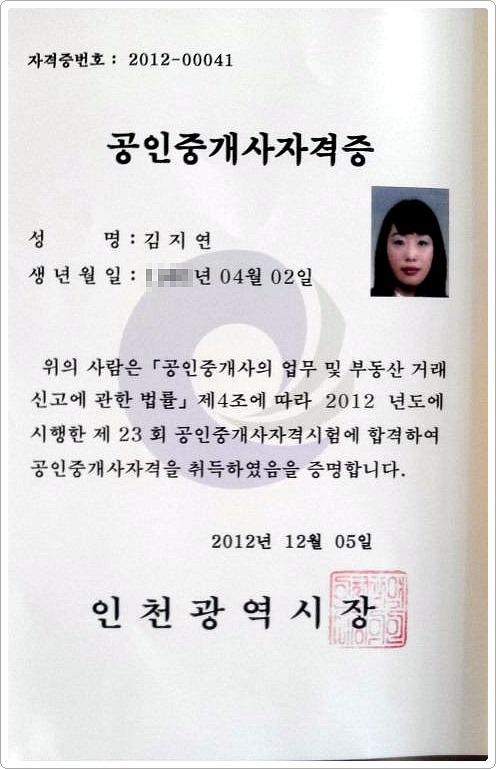 자격증번호 : 2012-00041
공인중개사자격증
성 명 : 김 지 연
생 년 월 일 : 년 04월 02일
위의 사람은 「공인중개사의 업무 및 부동산 거래
신고에 관한 법률」 제4조에 따라 2012 년도에
시행한 제 23 회 공인중개사자격시험에 합격하여
공인중개사자격을 취득하였음을 증명합니다.
2012년 12월 05일
인 천 광 역 시 장